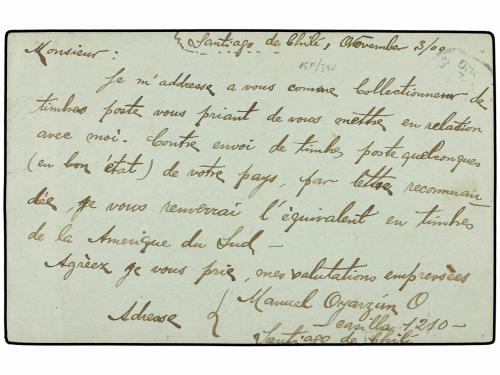 Santiago de Chile, November 3/09
Monsieur :
ASF/392
Je m'addresse a vous comme Collectionneur de
timbres poste vous priant de vous mettre en relation
avec moi. Contre envoi de timbres poste quelconques
(en bon état) de votre pays, par lettre recomman
dée, je vous renverrai l'équivalent en timbres
de la Amerique du Sud -
Agrèez je vous prie, mes salutations empressées
Manuel Oyarzún O
Adresse { - casilla 1210 -
Santiago de Chile